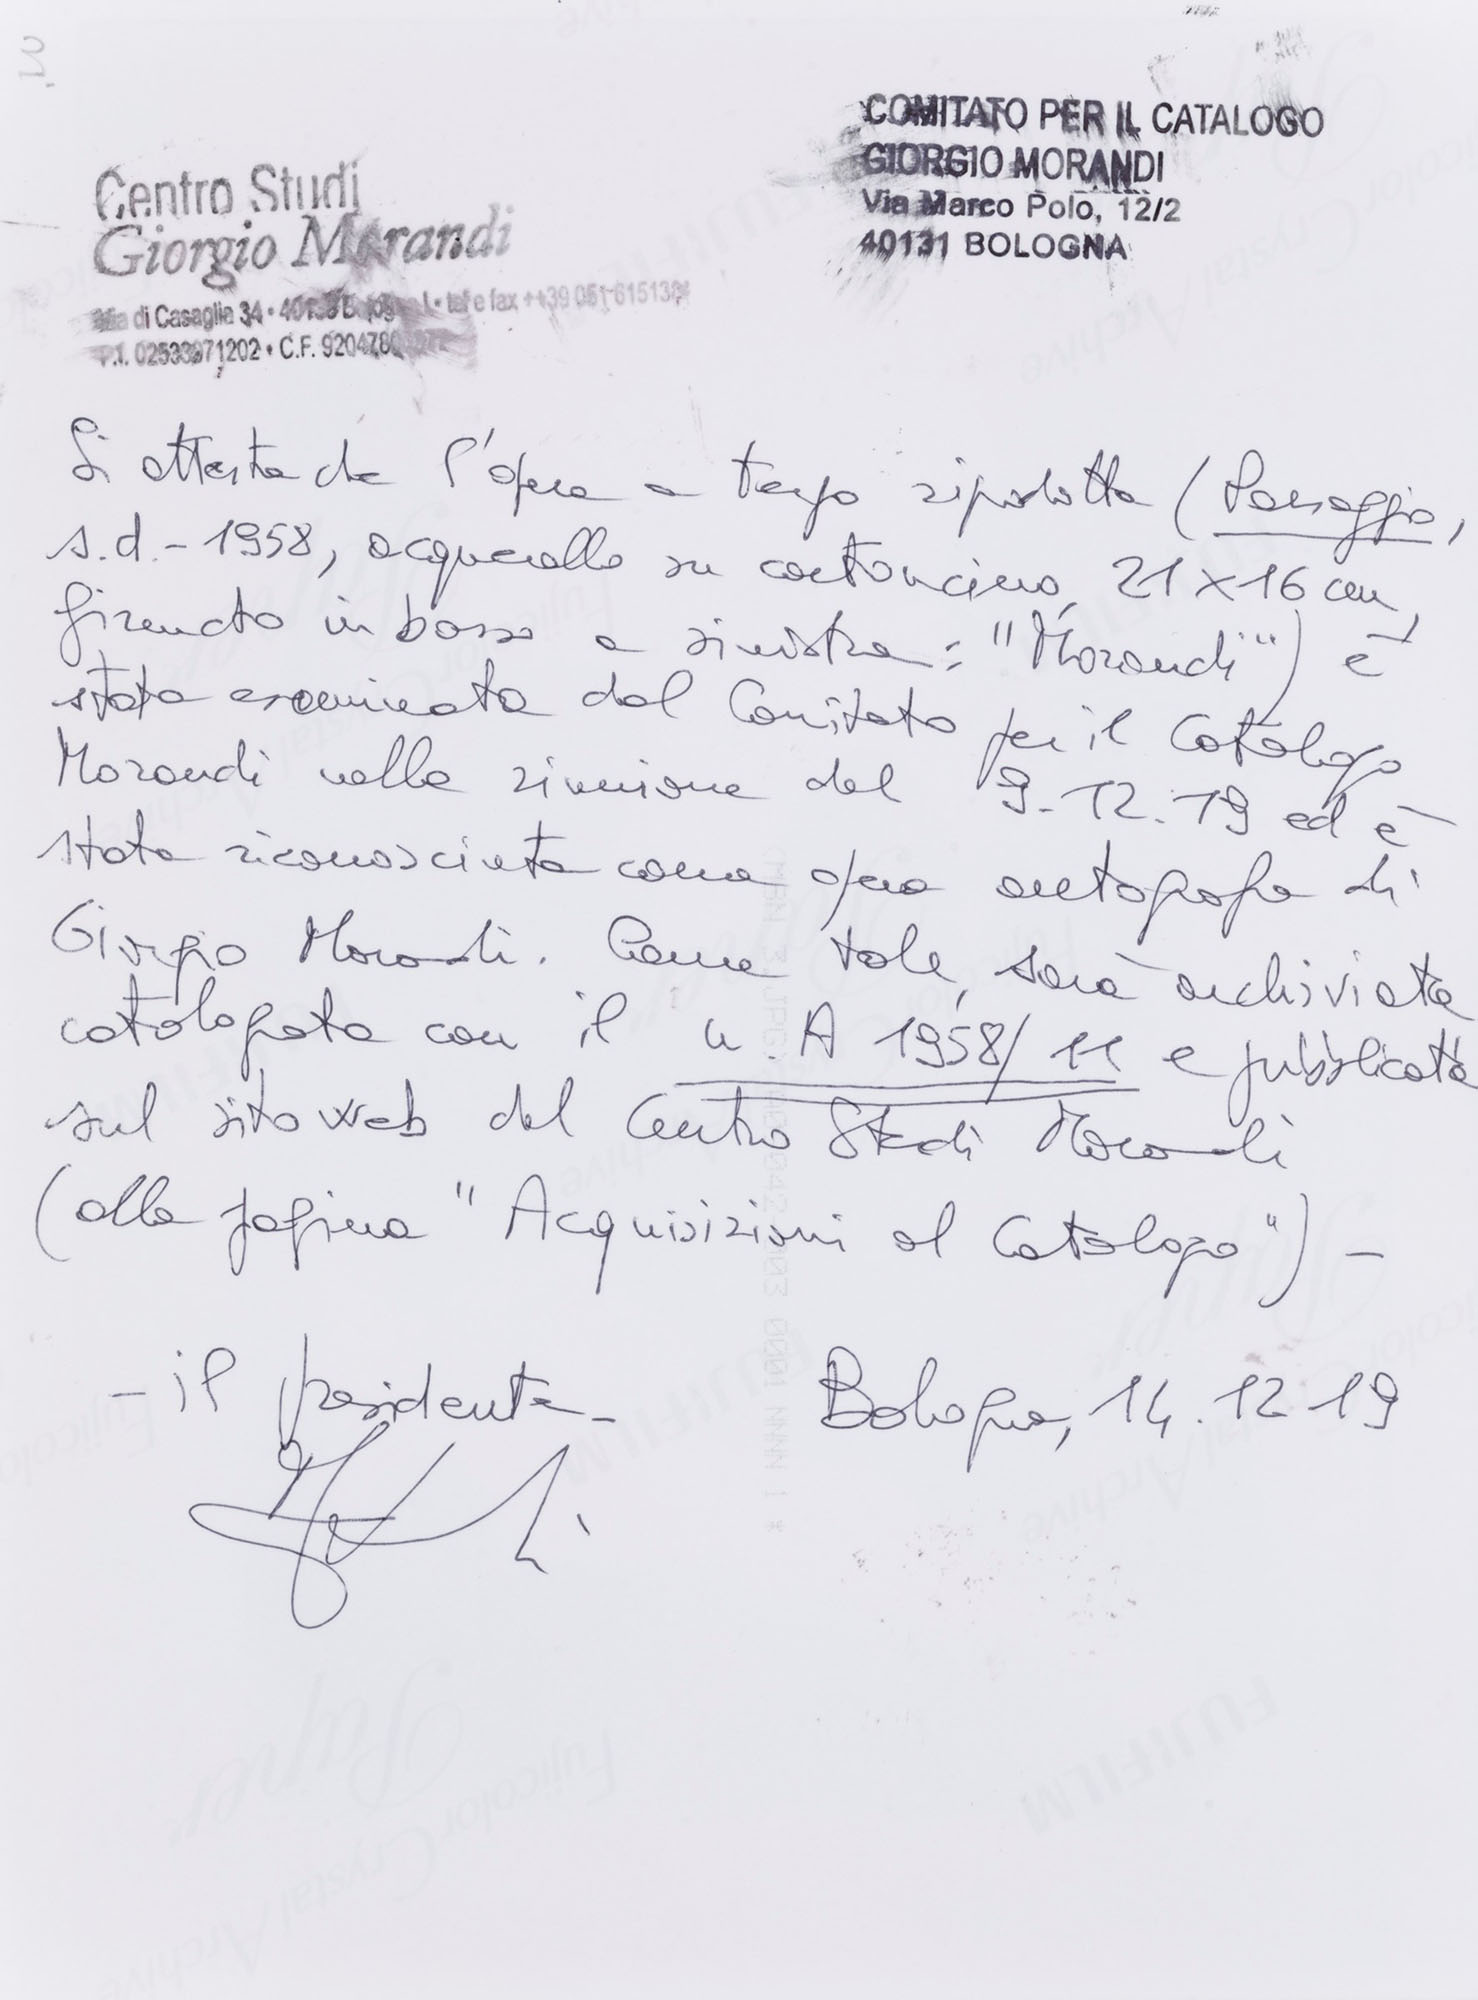 COMITATO PER IL CATALOGO
GIORGIO MORANDI
Via Marco Polo, 12/2
40131 BOLOGNA
Centro Studi
Giorgio Morandi
Via di Casaglia 34 • tel e fax ++39 051
P.I. 02533971202 • C.F.
Si attesta che l'opera a tergo riprodotta (Paesaggio,
s.d. - 1958, acquerello su cartoncino, 21 x 16 cm,
firmato in basso a sinistra: "Morandi") è
stata esaminata dal Comitato per il Catalogo
Morandi nella riunione del 9.12.19 ed è
stata riconosciuta come opera autografa di
Giorgio Morandi. Come tale, sarà archiviata
catalogata con il n. A 1958/11 e pubblicata
sul sito web del Centro Studi Morandi
(alla pagina "Acquisizioni al Catalogo") -
- il presidente - Bologna, 14.12.19
FUJIFILM
Fujicolor Crystal Archive
Paper